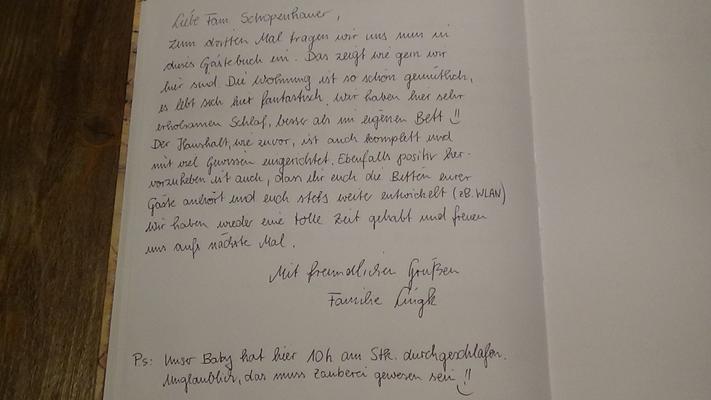 Liebe Fam. Schopenhauer,
zum dritten Mal tragen wir uns nun in
dieses Gästebuch ein. Das zeigt wie gern wir
hier sind. Die Wohnung ist so schön gemütlich,
es lebt sich hier fantastisch. Wir haben hier sehr
erholsamen Schlaf, besser als im eigenen Bett!!
Der Haushalt, wie zuvor, ist auch komplett und
mit viel Gewissen eingerichtet. Ebenfalls positiv her-
vorzuheben ist auch, dass ihr euch die Bitten eurer
Gäste anhört und euch stets weiter entwickelt (zB. WLAN)
Wir haben wieder eine tolle Zeit gehabt und freuen
uns aufs nächste Mal.
Mit freundlichen Grüßen
Familie
P.s: Unser Baby hat hier 10h am Stk. durchgeschlafen.
Unglaublich, das muss Zauberei gewesen sein!!